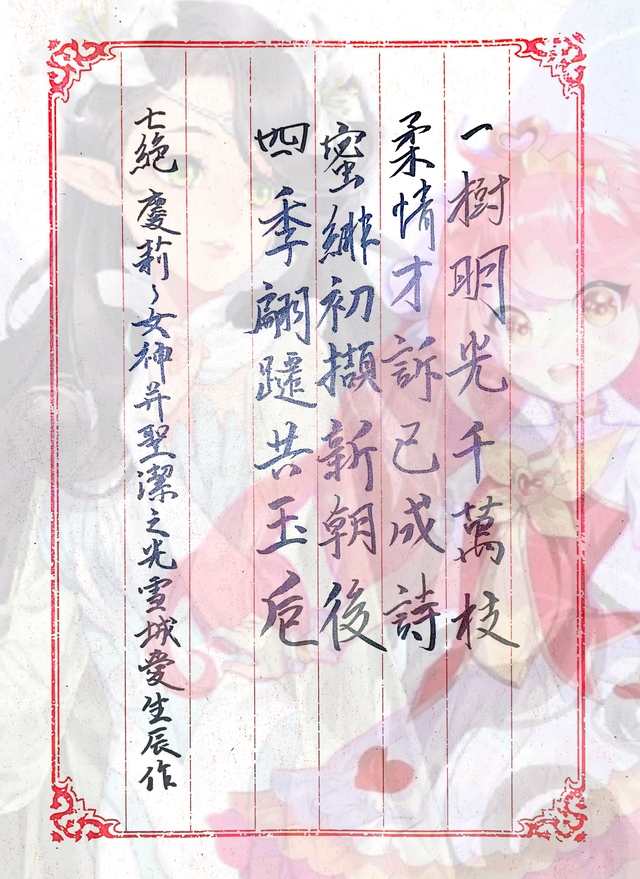 一樹明光千萬枝
柔情才訴已成詩
蜜緋初擷新朝後
四季翩躚共玉卮
七絕 慶莉〻女神并聖潔之光雪城愛生辰作